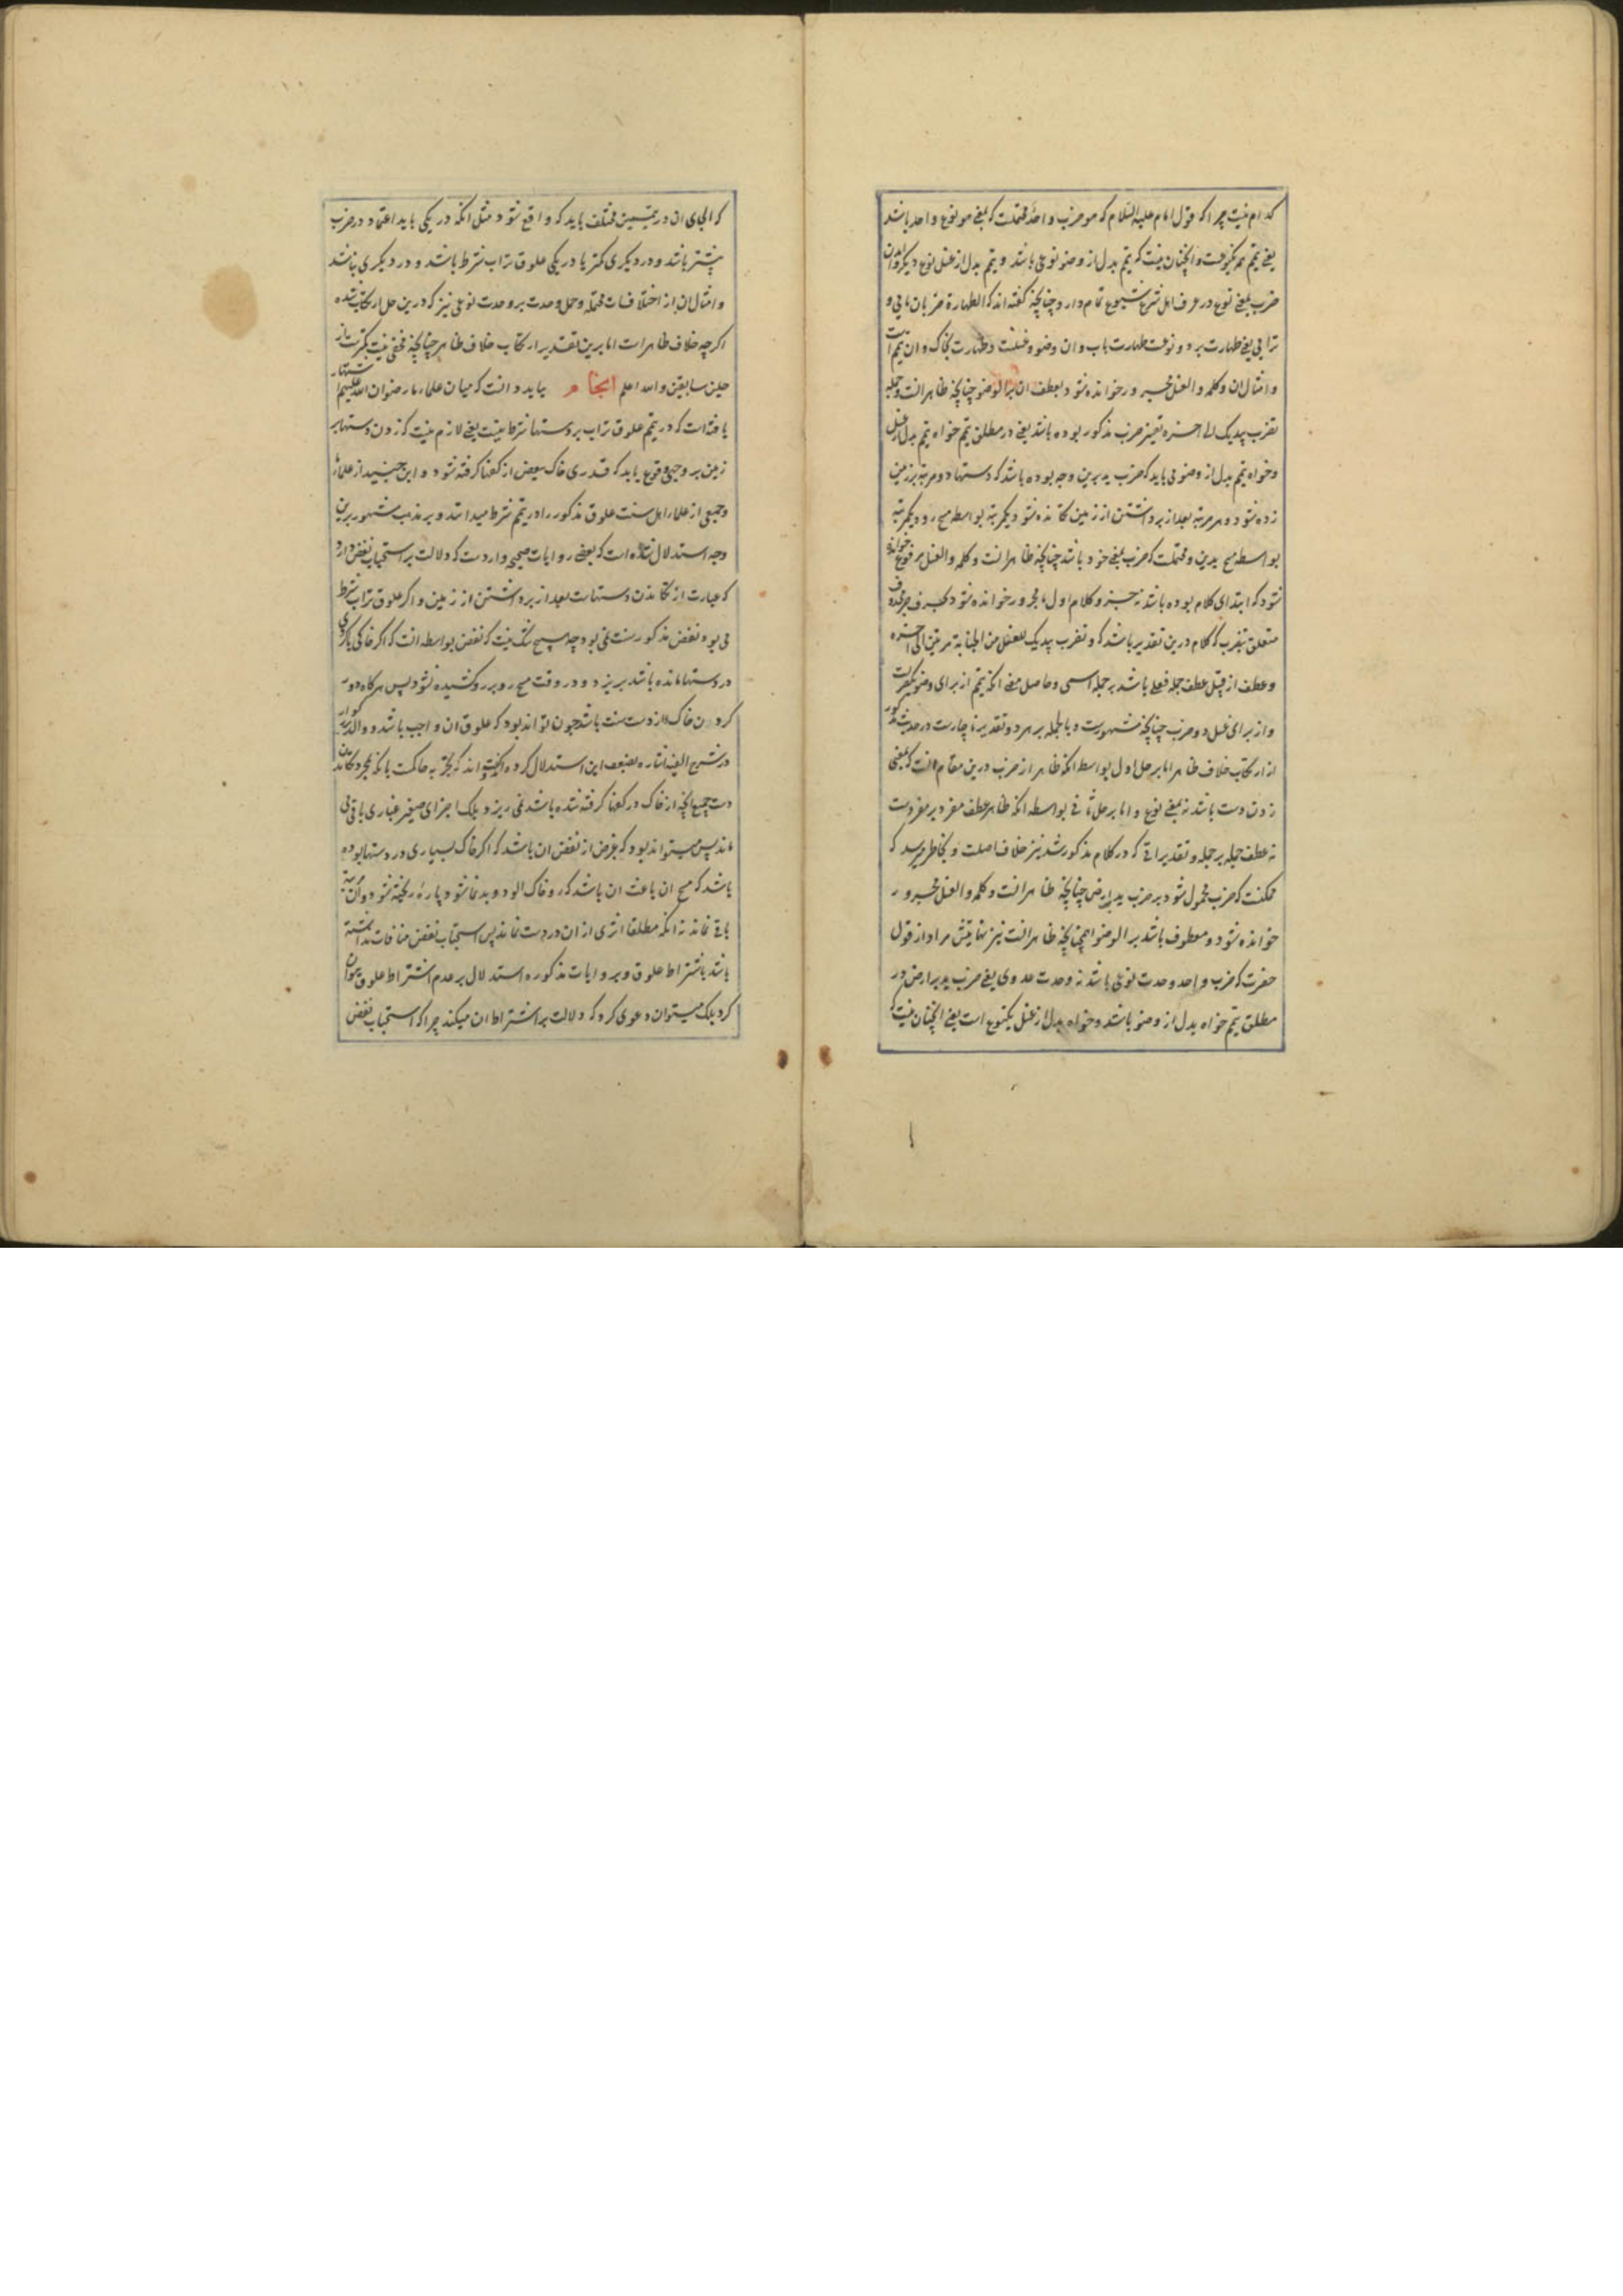 کدام نیست چرا که قول امام علیه السلام که هو ضرب واحد محتملست که بمعنی هو نوع واحد باشد
یعنی تیمم یکنوعست و انچنان نیست که تیمم بدل از وضو نوعی باشد و تیمم بدل از غسل نوع دیگر و امدن
ضرب بمعنی نوع در عرف اهل شرع شیوع تمام دارد چنانچه گفته اند که الطهارة ضربان مایی و
ترابی یعنی طهارت بر دو نوعست طهارت باب و ان وضو و غسلست و طهارت بخاک و ان تیمم است
و امثال ان و کلمه و الغسل مجرور خوانده شود بعطف ان بر الوضو چنانچه ظاهر انست و جمله
تضرب بیدیک الی اخره تفسیر ضرب مذکور بوده باشد یعنی در مطلق تیمم خواه تیمم بدل از غسل
و خواه تیمم بدل از وضو می باید که ضرب ید برین وجه بوده باشد که دستها دو مرتبه بر زمین
زده شود و هر مرتبه بعد از برداشتن از زمین تکانده شود یکمرتبه بواسطه مسح رو و یکمرتبه
بواسطه مسح یدین و محتملست که ضرب بمعنی خود باشد چنانچه ظاهر انست و کلمه و الغسل مرفوع خوانده
شود که ابتدای کلام بوده باشد نه جزو کلام اول یا مجرور خوانده شود بحرف جر محذوف
متعلق بتضرب که کلام درین تقدیر باشد که و تضرب بیدیک للغسل من الجنابه مرتین الی اخره
و عطف از قبیل عطف جمله فعلی باشد بر جمله اسمی و حاصل معنی انکه تیمم از برای وضو یکضربست
و از برای غسل دو ضرب چنانچه مشهورست و بالجمله بر هر دو تقدیر ناچارست در حدیث مذکور
از ارتکاب خلاف ظاهر اما بر حمل اول بواسطه انکه ظاهر از ضرب درین مقام انست که بمعنی
زدن دست باشد نه بمعنی نوع و اما بر حمل ثانی بواسطه انکه ظاهر عطف مفرد بر مفردست
نه عطف جمله بر جمله و تقدیراتی که در کلام مذکور شد نیز خلاف اصلست و بخاطر میرسد که
ممکنست که ضرب محمول شود بر ضرب ید بارض چنانچه ظاهر انست و کلمه و الغسل مجرور
خوانده شود و معطوف باشد بر الوضو همچنانچه ظاهر انست نیز نهایتش مراد از قول
حضرت که ضرب واحد وحدت نوعی باشد نه وحدت عددی یعنی ضرب ید بر ارض در
مطلق تیمم خواه بدل از وضو باشد و خواه بدل از غسل یکنوع است یعنی انچنان نیست
که الحای ان در تیممین مختلف باید که واقع شود مثل انکه در یکی باید اعتماد در ضرب
بیشتر باشد و در دیگری کمتر یا در یکی علوق تراب شرط باشد و در دیگری نباشد
و امثال ان از اختلافات محتمله و حمل وحدت بر وحدت نوعی نیز که درین حمل ارتکاب شده
اگرچه خلاف ظاهرست اما برین تقدیر ارتکاب خلاف ظاهر چنانچه مخفی نیست کمترست از
حملین سابقین و الله اعلم انجام بباید دانست که میان علماء ما رضوان الله علیهم اشتهار
یافته است که در تیمم علوق تراب بر دستها شرط نیست یعنی لازم نیست که زدن دستها بر
زمین بر وجهی وقوع یابد که قدری خاک ببعض از کفها گرفته شود و ابن جنید از علماء ما
و جمعی از علماء اهل سنت علوق مذکور را در تیمم شرط میدانند و بر مذهب مشهور برین
وجه استدلال شده است که بعضی روایات صحیحه واردست که دلالت بر استحباب نفض دارد
که عبارت از تکاندن دستهاست بعد از برداشتن از زمین و اگر علوق تراب شرط
می بود نفض مذکور سنت نمی بود چه هیچ شک نیست که نفض بواسطه انست که اگر خاکی یا گردی
در دستها مانده باشد بریزد و در وقت مسح رو بر رو کشیده نشود پس هرگاه دور
کردن خاک از دست سنت باشد چون تواند بود که علوق ان واجب باشد و والد بزرگوار
در شرح الفیه اشاره بضعف این استدلال کرده و گفته اند که تجربه حاکمست بانکه بمجرد تکاندن
دست جمیع انچه از خاک در کفها گرفته شده باشد نمی ریزد بلکه اجزای صغیر غباری باقی می
ماند پس میتواند بود که غرض از نفض ان باشد که اگر خاک بسیاری در دستها بوده
باشد که مسح ان باعث ان باشد که رو خاک الود و بدنما شود پاره ریخته شود و اندک
باقی نماند نه انکه مطلقا اثری از ان در دست نماند پس استحباب نفض منافات نداشته
باشد باشتراط علوق و بروایات مذکوره استدلال بر عدم اشتراط علوق نتوان
کرد بلکه میتوان دعوی کرد که دلالت بر اشتراط ان میکند چرا که استحباب نفض